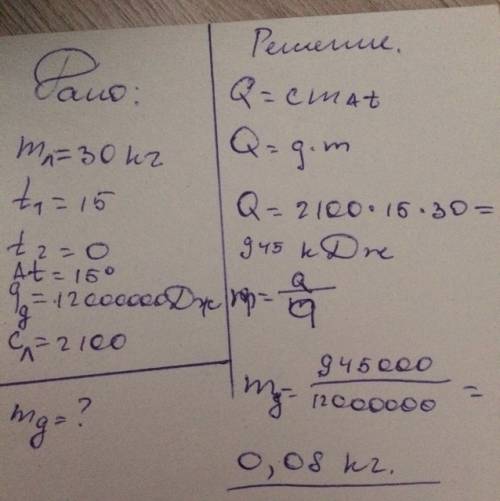 Дано:
m л = 30 кг
t₁ = 15
t₂ = 0
Δt = 15°
q д = 12000000 Дж
c л = 2100
m д = ?
Решение.
Q = cmΔt
Q = q · m
Q = 2100 · 15 · 30 =
945 кДж
m = Q / q
m д = 945000 / 12000000 =
0,08 кг.